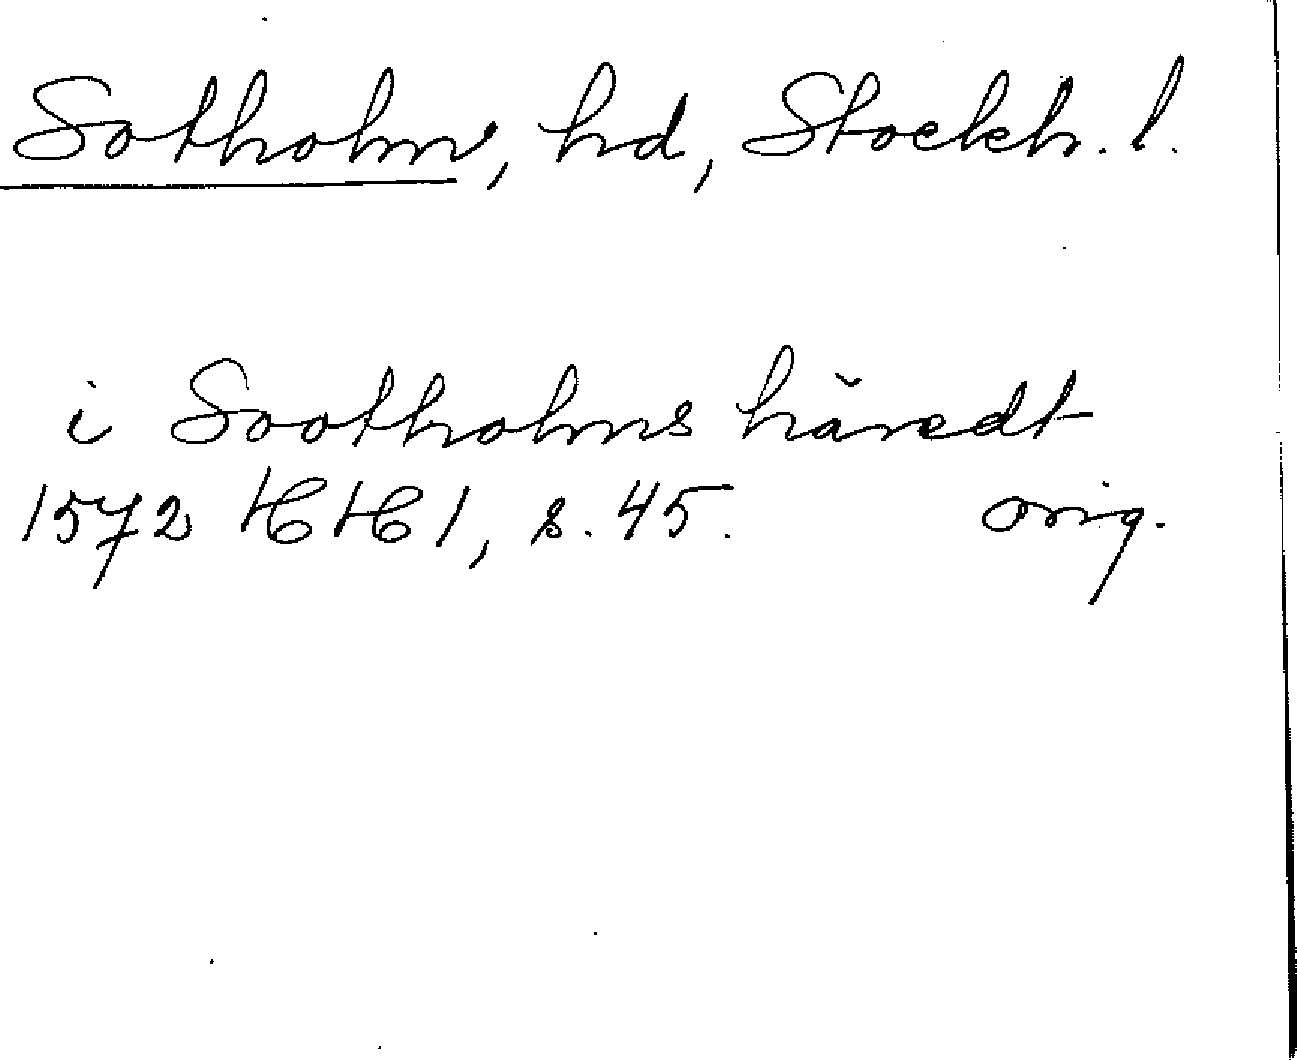 Sotholm, hd, Stockh. l.
i Sootholms håredt
1572 HH 1, s. 45. orig.